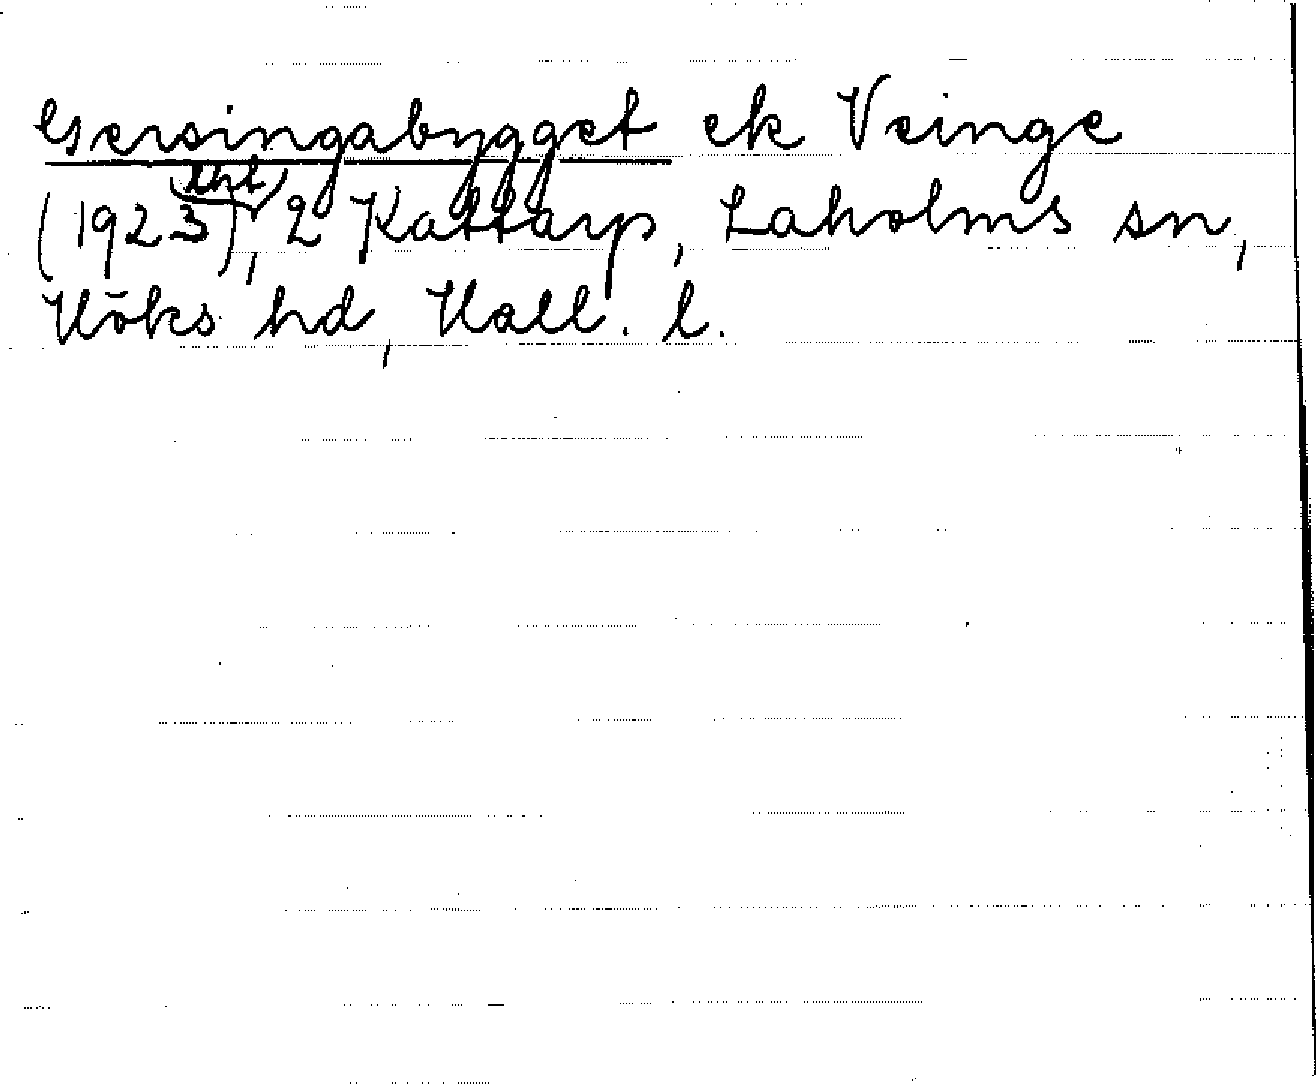 Gersingabygget ek Veinge
(1923), 2 Kattarp, Laholms sn,
Höks hd, Hall. l.